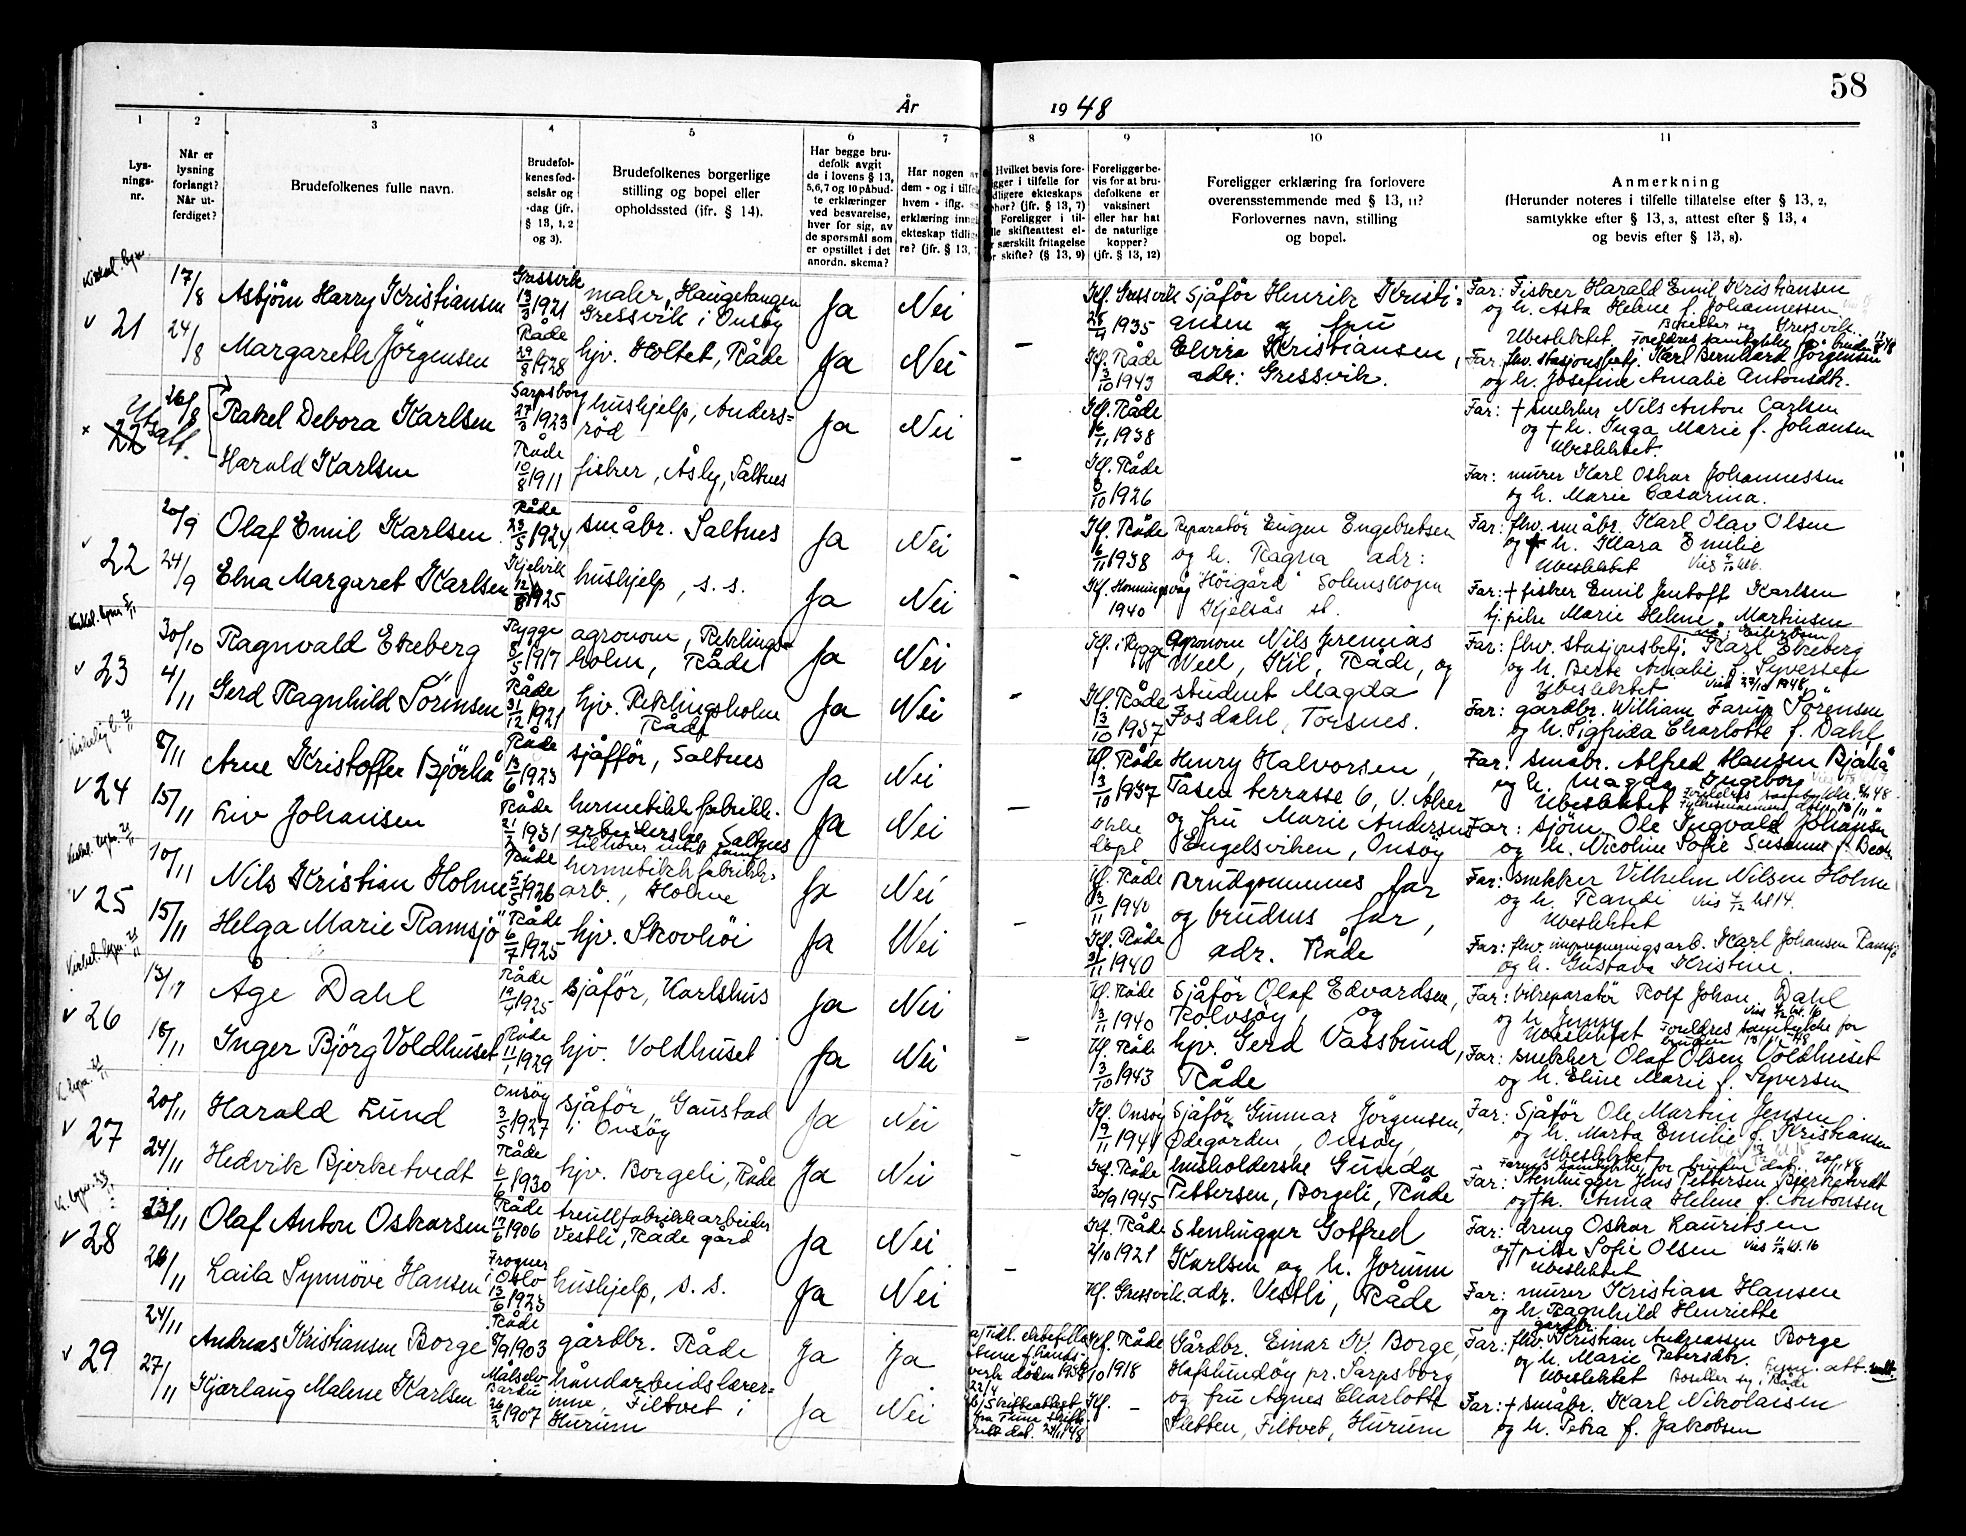 58
År 1948
1 2 3 4 5 6 7 8 9 10 11
Lysningsnr.
Når er lysning forlangt? Når utferdiget?
Brudefolkenes fulle navn.
Brudefolkenes fødselsår og -dag (jfr. § 13, 1, 2 og 3).
Brudefolkenes borgerlige stilling og bopel eller opholdssted (ifr. § 14).
Har begge brudefolk avgit de i lovens § 13, 5,6,7 og 10 påbudte erklæringer ved besvarelse, hver for sig, av de spørsmål som er opstillet i det anordn. skema?
Har nogen av dem - og i tilfelle hvem - iflg.
erklæring inng
ekteskap tidlig
re? (jfr. § 13,
Hvilket bevis fore-
gger i tilfelle for
dligere ekteskaps
phør? (jfr. § 13, 7)
Foreligger i til-
lle skifteattest el-
r særskilt fritagelse
r skifte? (§ 13, 9)
Foreligger bevis for at brudefolkene er vaksinert eller har hat de naturlige kopper? (jfr. § 13, 12)
Foreligger erklæring fra forlovere overensstemmende med § 13, 11? Forlovernes navn, stilling og bopel.
Anmerkning
(Herunder noteres i tilfelle tillatelse efter § 13, 2, samtykke efter § 13, 3, attest efter § 13, 4 og bevis efter § 13, 8).
v 21
17/8 Asbjörn Harry Kristiansen Gressvik 13/3 1921 maler, Haugetangen Gressvik i Onsöy Ja Nei Kf. Gressvik 28/4 1935 Sjåför Henrik Kristiansen og fru Far: Fisker Harald Emil Kristiansen og h. Asta Helene f. Johannessen.
Ubeslektet. Foreldres samtykke for bruden
24/8 Margareth Jörgensen Råde 29/8 1928 hjv. Holtet, Råde Ja Nei – Kf. Råde 3/10 1943 Elvira Kristiansen, adr: Gressvik. Far: fhv. stasjonsbetj. Karl Bernhard Jörgensen og h. Josefine Amalie Antonsdtr.
x 22 Utsatt.
26/8 Rakel Debora Karlsen Sarpsborg 27/3 1923 hushjelp, Andersröd Ja Nei Kf. Råde 6/11 1938 Far: + snekker Nils Anton Carlsen og + h. Inga Marie f. Johansen
Ubeslektet.
Harald Karlsen Råde 10/8 1911 fisker, Åsly, Saltnes – Kf. Råde 3/10 1926 Far: murer Karl Oskar Johannessen og h. Marie Cæsarina.
v 22
20/9 Olaf Emil Karlsen Råde 23/5 1924 småbr. Saltnes Ja Nei Kf. Råde 6/11 1938 Reparatör Eugen Engebretsen og h. Ragna adr: Far: fhv. småbr. Karl Olav Olsen og h. Klara Emilie
Ubeslektet
24/9 Elna Margaret Karlsen Kjelvik 12/8 1925 hushjelp, s. s. Ja Nei – Kf. Honningsvåg 1940 "Höigård" Solemskogen Kjelsås st. Far: + fisker Emil Jentoft Karlsen og pike Marie Helene Martinsen
v 23
30/10 Ragnvald Ekeberg Rygge 8/5 1917 agronom, Rirklingsholm, Råde Ja Nei Kf. i Rygge Agronom Nils Jeremias Weel, Kil, Råde, og Far: fhv. stasjonsbetj. Karl Ekeberg og h. Berte Amalie f. Syversen
Ubeslektet
4/11 Gerd Ragnhild Sörensen Råde 31/12 1921 hjv. Råde Ja Nei – Kf. Råde 3/10 1937 student Magda Fosdahl, Torsnes. Far: gårdbr. William Farup Sörensen og h. Sigfrida Charlotte f. Dahl
v 24
8/11 Arne Kristoffer Björkå Råde 13/6 1923 sjåför, Saltnes Ja Nei Kf. Råde 3/10 1937 Henry Halvorsen, Tåsen terrasse 6, V. Aker Far: småbr. Alfred Hansen Bjørkå og h. Magda Ingeborg
Ubeslektet
15/11 Liv Johansen Råde 21/2 1931 hermetikkfabrikkarbeiderske Saltnes Ja Nei – og fru Marie Andersen Engelsviken, Onsöy Far: sjöm. Ole Ingvald Johansen og h. Nicoline Sofie Susanne f. Beck
v 25
10/11 Nils Kristian Holme Råde 5/5 1926 hermetikkfabrikkarb., Holme Ja Nei Kf. Råde 3/11 1940 Brudgommens far og brudens far, adr. Råde Far: snekker Vilhelm Nilsen Holme og h. Randi
Ubeslektet
15/11 Helga Marie Ramsjö Råde 6/7 1925 hjv. Skovhöi Ja Nei – Kf. Råde 3/11 1940 Far: fhv. impregneringsarb. Karl Johansen Ramsjö og h. Gustava Kristine.
v 26
13/11 Åge Dahl Råde 19/4 1925 sjåför, Karlshus Ja Nei Kf. Råde 3/11 1940 Sjåför Olaf Edvardsen, Rolvsöy, og Far: bilreparatör Rolf Johan Dahl og h. Jenny
Ubeslektet Foreldres samtykke for bruden
18/11 Inger Björg Voldhuset Råde 11/1 1929 hjv. Voldhuset Ja Nei – Kf. Råde 3/10 1943 hjv. Gerd Vassbund, Råde Far: snekker Olaf Olsen Voldhuset og h. Eline Marie f. Syversen
v 27
20/11 Harald Lund Onsöy 3/5 1927 sjåför, Gaustad i Onsöy Ja Nei Kf. Onsöy 9/11 1941 Sjåför Gunnar Jörgensen, Ödegården, Onsöy, Far: Sjåför Ole Martin Jensen og h. Marta Emilie f. Kristiansen
Ubeslektet
Farens samtykke for bruden dat. 20/11 48
24/11 Hedvik Bjerketvedt Råde 6/6 1930 hjv. Borgeli, Råde Ja Nei Kf. Råde 30/9 1945 husholderske Gunda Pettersen, Borgeli, Råde Far: Stenhugger Jens Pettersen Bjerketvedt og + h. Anna Helene f. Antonsen
v 28
23/11 Olaf Anton Oskarsen Råde 13/6 1906 treullfabrikkarbeider Vestli, Råde gård Ja Nei Kf. Råde 2/10 1921 Stenhugger Gotfred Karlsen og h. Jorunn Far: dreng Oskar Lauritsen og + pike Sofie Olsen
Ubeslektet
26/11 Laila Synnöve Hansen Frogner i Oslo 13/6 1923 hushjelp, s. s. Ja Nei – Kf. Gressvik. adr. Vestli, Råde Far: murer Kristian Hansen og h. Ragnhild Henriette
v 29
24/11 Andreas Kristiansen Borge Råde 8/9 1903 gårdbr. Råde Ja Ja Kf. Råde 6/10 1918 Gårdbr. Einar K. Borge, Hafslundsöy pr. Sarpsborg Far: fhv. gårdbr. Kristian Andreassen Borge og h. Marie Petersdtr.
Ubeslektet Bosetter seg i Råde
27/11 Kjærlaug Malene Karlsen Målselv Bardu 26/2 1907 håndarbeidslærerinne, Filtvet i Hurum Ja Nei Kf. – og fru Agnes Charlotte Sletten, Filtvet, Hurum Far: + småbr. Karl Nikolaisen og h. Petra f. Jakobsen